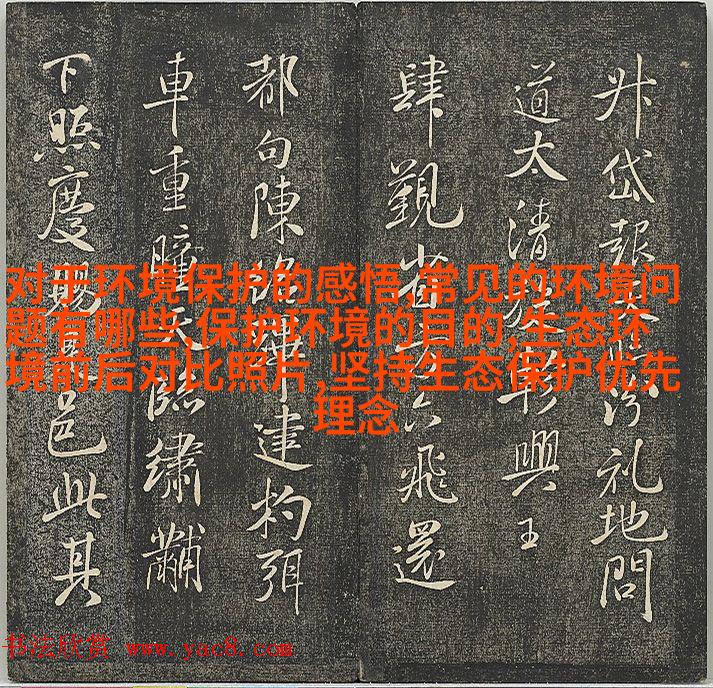 对于环境保护的感悟,常见的环境问
题有哪些,保护环境的目的,生态环
境前后对比照片,坚持生态保护优先
理念
升岱報汾礼地問
道太清興王
肆觀六飛還
都句陳建杓弭
車重瞳天臨繡黼
下照慶賜邑此其
书法欣赏 www.yac8.com